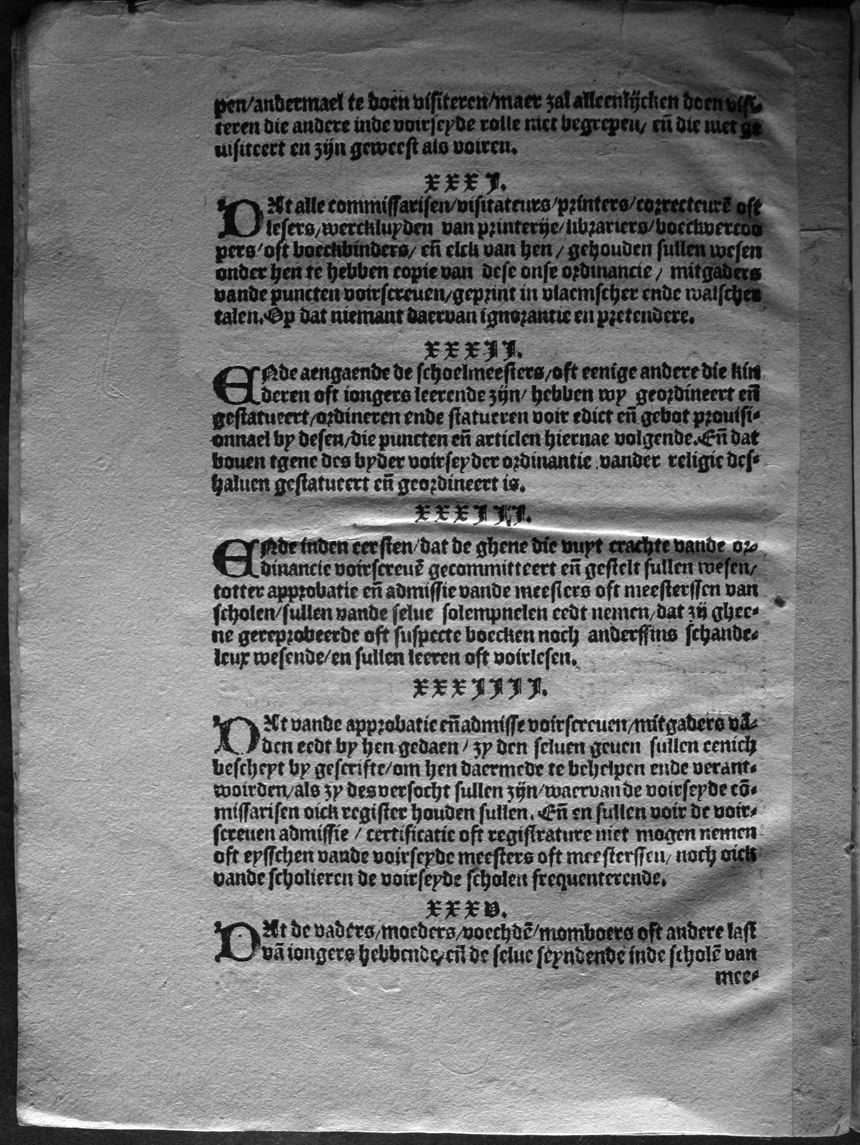 pen/andermael te doen visiteren/maer zal alleenlijcken doen visi-
teren die andere inde voirseyde rolle niet begrepen/ eñ die niet ge
uisiteert en zijn geweest als voiren.
XXXJ.
DAt alle commissarisen/visitateurs/printers/correcteurē oft
lesers/werckluyden van printerije/librariers/boeckvercoo
pers/oft boeckbinders/ eñ elck van hen/ gehouden sullen wesen
onder hen te hebben copie van dese onse ordinancie/ mitgaders
vande puncten voirscreuen/geprint in vlaemscher ende walscher
talen. Op dat niemant daervan ignorantie en pretendere.
XXXIJ.
ENde aengaende de schoelmeesters/oft eenige andere die kin
deren oft iongers leerende zijn/ hebben wy geordineert eñ
gestatueert/ordineren ende statueren voir edict eñ gebot prouisi-
onnael by desen/die puncten eñ articlen hiernae volgende. Eñ dat
bouen tgene des byder voirseyder ordinantie vander religie des-
haluen gestatueert eñ geordineert is.
XXXIIJ.
ENde inden eersten/dat de ghene die vuyt crachte vande or-
dinancie voirscreuē gecommitteert eñ gestelt sullen wesen/
totter approbatie eñ admissie vande meesters oft meesterssen van
scholen/sullen vande selue solempnelen eedt nemen/dat zij ghee-
ne gereprobeerde oft suspecte boecken noch anderssins schande-
leux wesende/en sullen leeren oft voirlesen.
XXXIIIJ.
DAt vande approbatie eñ admisse voirscreuen/mitgaders vā-
den eedt by hen gedaen/ zy den seluen geuen sullen eenich
bescheyt by gescrifte/om hen daermede te behelpen ende verant-
woirden/als zy des versocht sullen zijn/waervande voirseyde cō-
missarisen oick register houden sullen. Eñ en sullen voir de voir-
screuen admissie/ certificatie oft registrature niet mogen nemen
oft eysschen vande voirseyde meesters oft meesterssen/ noch oick
vande scholieren de voirseyde scholen frequenterende.
XXXV.
DAt de vaders/moeders/voechdē/momboers oft andere last
vā iongers hebbende/eñ de selue seyndende inde scholē van
mee-